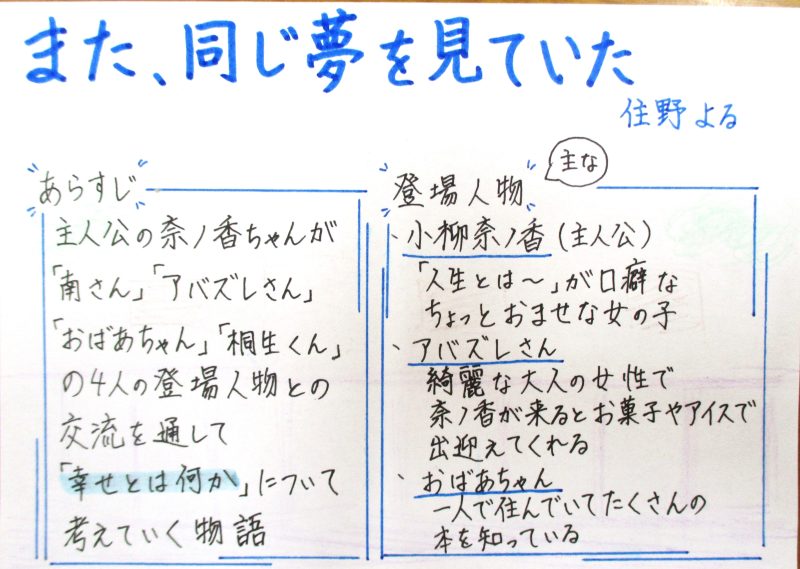 また、同じ夢を見ていた
住野よる
あらすじ
主人公の奈ノ香ちゃんが
「南さん」「アバズレさん」
「おばあちゃん」「桐生くん」
の4人の登場人物との
交流を通して
「幸せとは何か」について
考えていく物語
主な
登場人物
・小柳奈ノ香(主人公)
「人生とは〜」が口癖な
ちょっとおませな女の子
・アバズレさん
綺麗な大人の女性で
奈ノ香が来るとお菓子やアイスで
出迎えてくれる
・おばあちゃん
一人で住んでいてたくさんの
本を知っている